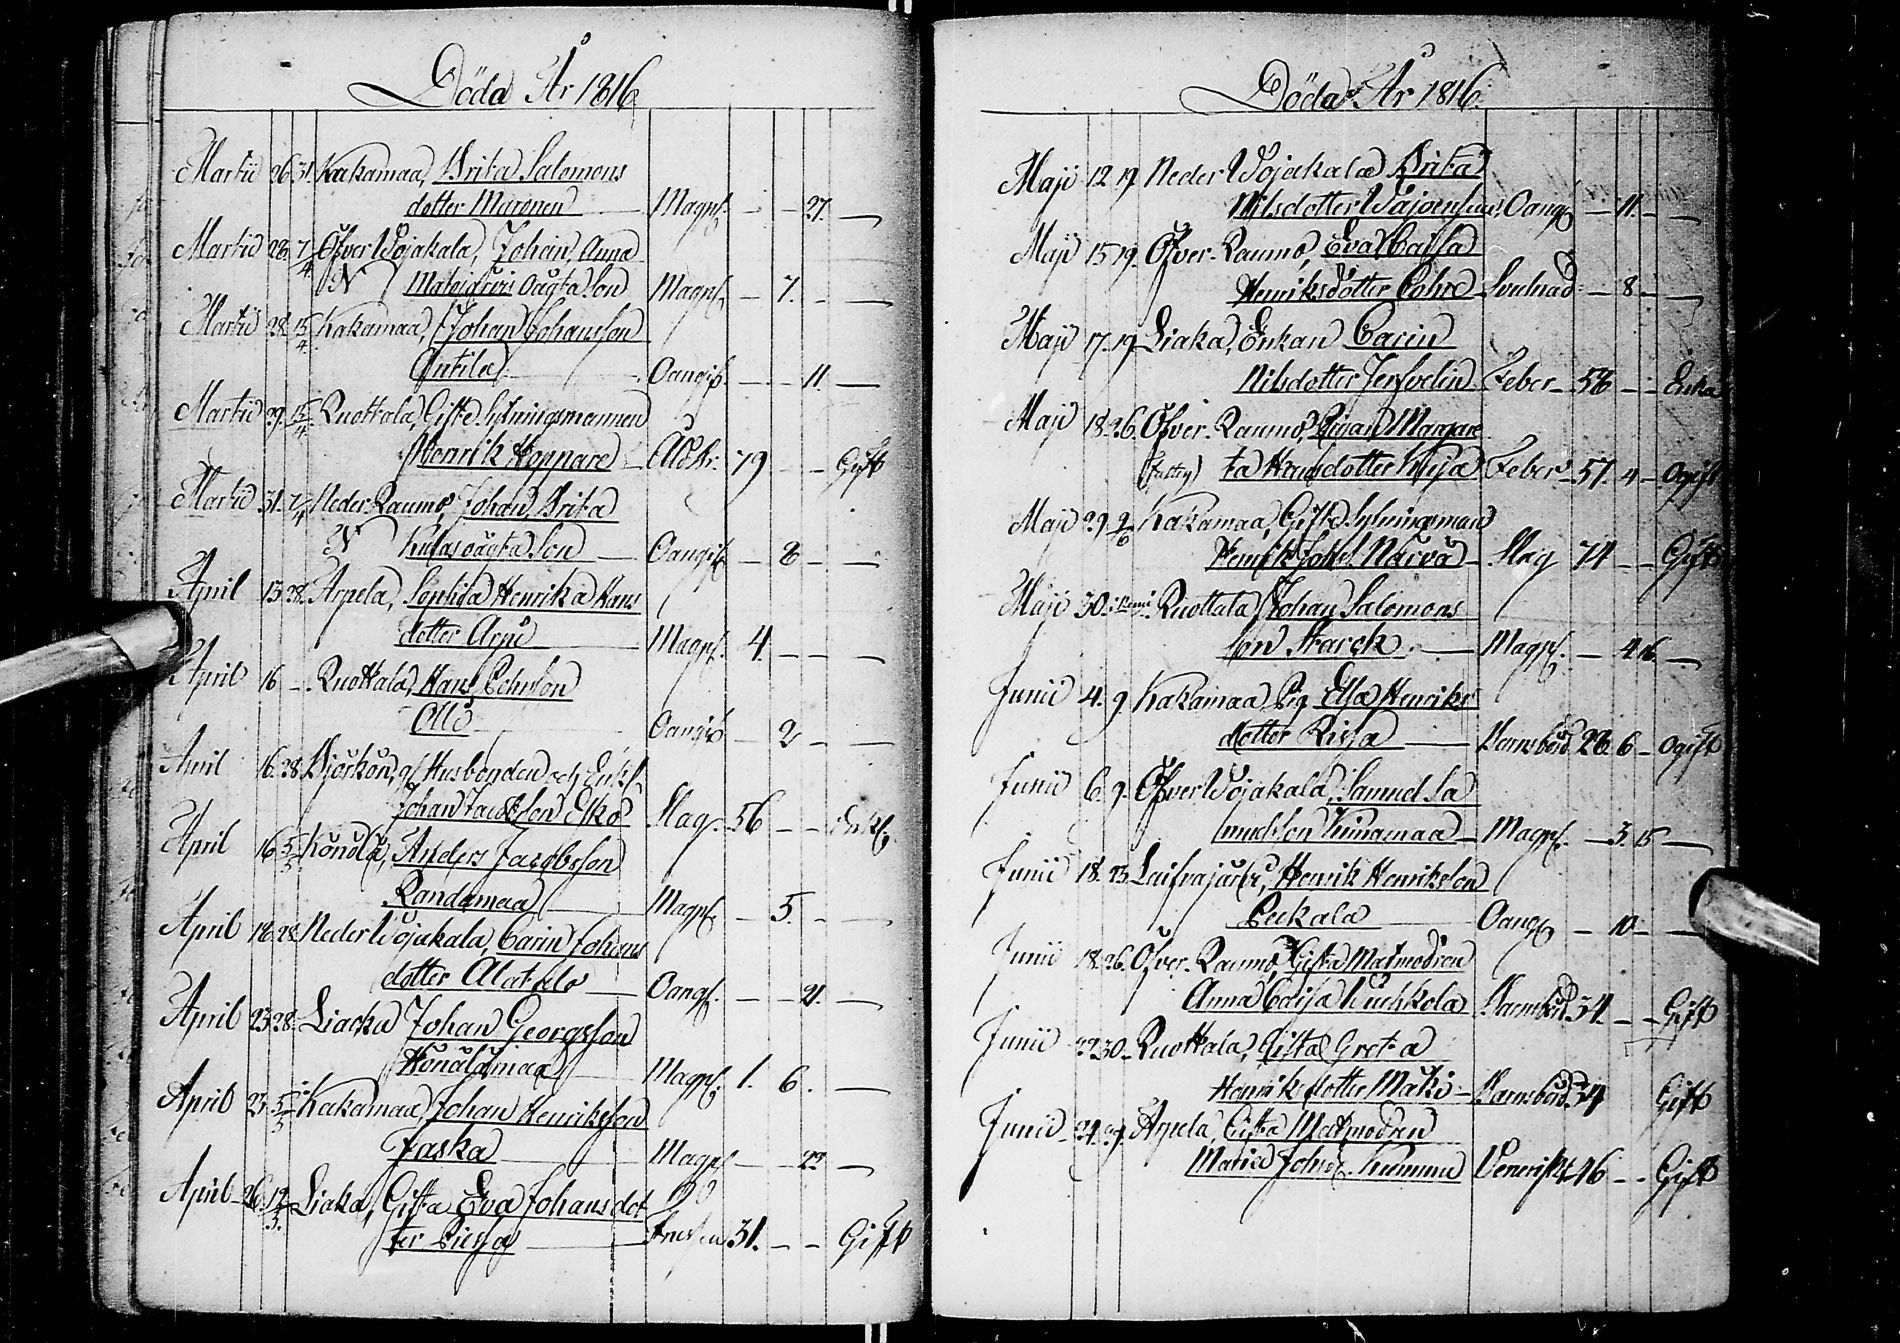 Döda År 1816
Martii 26 31. Kakamaa, Brita Salomons
dotter Maronen Magpl. — — 27. —
Martii 28. 7/4 Öfver Wojakala, Johan, Anna
N Matojärvis oägta Son Magpl. — 7. — —
Martii 28. 15/4. Kakamaa, Johan Johansson
Antila Oangif. — — 11. —
Martii 29. 15/4. Ruottala, Gifte Sytningsmannen
Henrik Hoppare Åld.br. 79 — — Gift
Martii 31. 7/4 Neder Raumo, Johan, Brita
N oägta Son Oangif. — 8 — —
April 13 28. Arpela, Sophia Henrika Hans
dotter Magpl. 4. — — —
April 16 — Ruottala, Hans Pehrson
Ollo Oangif. — 2 — —
April 16. 28. Björkön, Husbonden och Enkl.
Johan Slag. 56 — — Enkl.
April 16 5/5 Könölä, Anders Jacobsson
Randamaa Magpl. — 5. — —
April 18. 28. Neder Wojakala, Carin Johans
dotter Alatalo Oangif. — — 21. —
April 23 28. Liacka Johan Georgsson
Könälämaa Magpl. 1. 6. —
April 23 5/5 Kakamaa, Johan Henriksson
Jaska Magpl. — — 22 —
April 26. 12/5. Liaka, Gifta Eva Johansdot
ter 31. — — Gift
Döda År 1816.
Maji 12 19 Neder Wojakala Brita
Nilsdotter Oangif — 11. — —
Maji 15 19. Öfver Raumo, Eva Caisa
Henriksdotter — 8 — —
Maji 17. 19 Liaka, Enkan Carin
Nilsdotter Feber — 58 — — Enka
Maji 18. 26. Öfver Raumo, Pigan Margare
(fattig) ta Hansdotter Feber — 57. 4 — Ogift
Maji 29 2/6 Kakamaa, Gifte Sytningsman
Henrik Johss. Närvä Slag 74 — — Gift
Maji 30. Ruottala Johan Salomons
son Starck Magpl. — 4 16. —
Junii 4. 9 Kakamaa Pig. Elsa Henriks
dotter Rissa Barnsbörd. 28. 6 — Ogift
Junii 6. 9. Öfver Wojakala, Samuel Sa
muelson Viinamaa Magpl. — 3. 15 —
Junii 18. 23 Laivajärvi, Henrik Henriksson
Peckala Oangif — 10 — —
Junii 18. 26. Öfver Raumo, Gifta Matmodren
Anna Caisa Barnsbörd 34. — — Gift
Junii 22 30. Ruottala, Gifta Greta
Henriksdotter Mäki Barnsbörd. 34 Gift
Junii 24. Arpela, Gifta Matmodren
Maria Johsd. 46 — — Gift